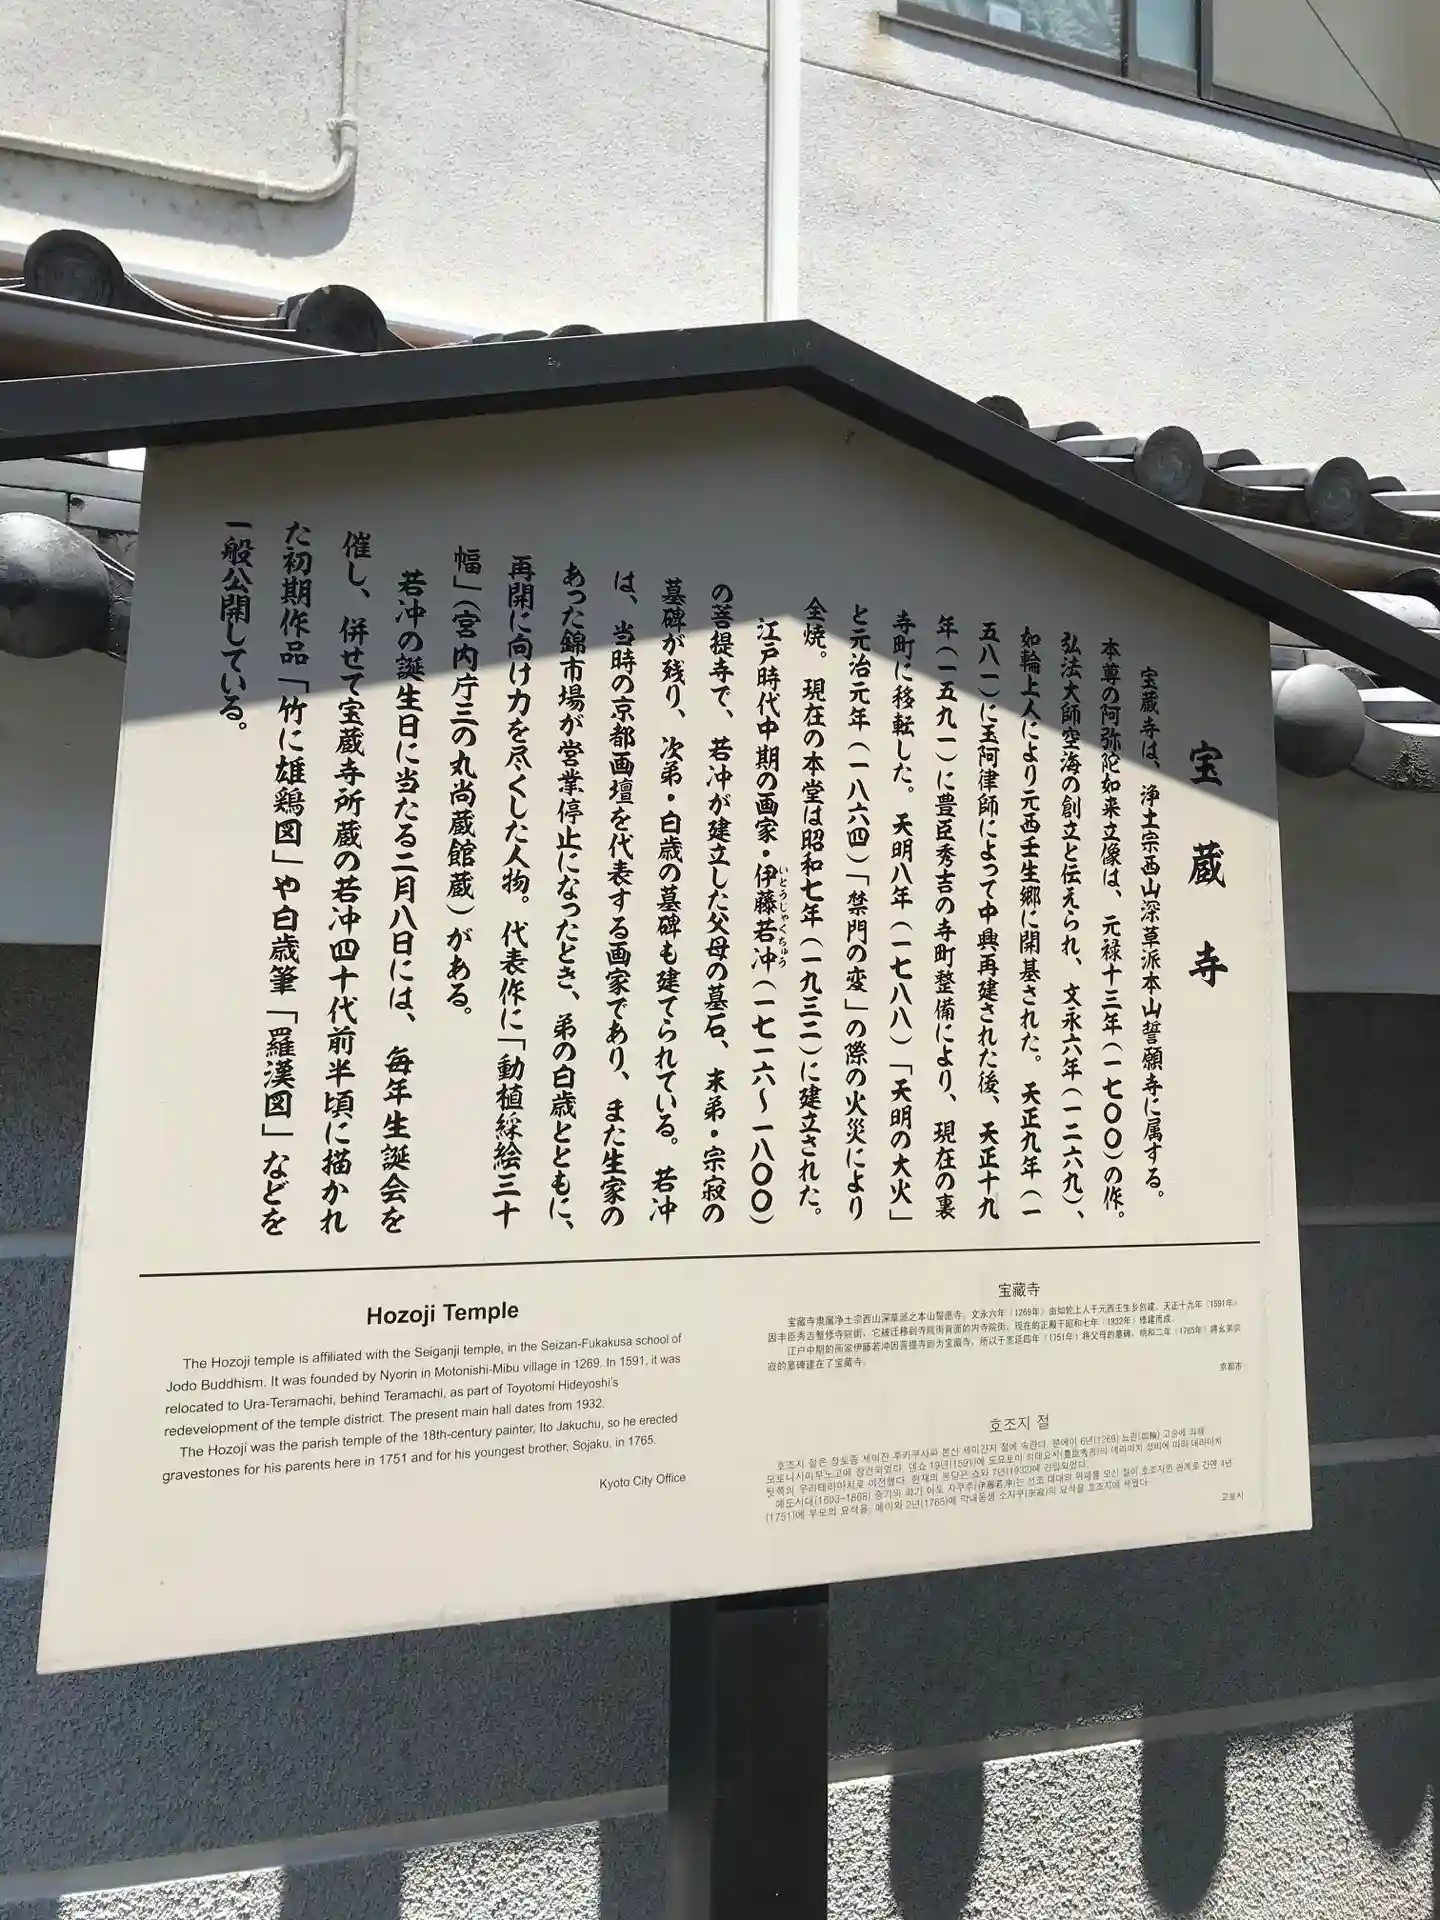 宝蔵寺
宝蔵寺は、浄土宗西山深草派本山誓願寺に属する。
本尊の阿弥陀如来立像は、元禄十三年(一七〇〇)の作。
弘法大師空海の創立と伝えられ、文永六年(一二六九)、
如輪上人により元西壬生郷に開基された。天正九年(一
五八一)に玉阿律師によって中興再建された後、天正十九
年(一五九一)に豊臣秀吉の寺町整備により、現在の裏
寺町に移転した。天明八年(一七八八)「天明の大火」
と元治元年(一八六四)「禁門の変」の際の火災により
全焼。現在の本堂は昭和七年(一九三二)に建立された。
江戸時代中期の画家・伊藤若冲(一七一六〜一八〇〇)
いとうじゃくちゅう
の菩提寺で、若冲が建立した父母の墓石、末弟・宗寂の
墓碑が残り、次弟・白歳の墓碑も建てられている。若冲
は、当時の京都画壇を代表する画家であり、また生家の
あった錦市場が営業停止になったとき、弟の白歳とともに、
再開に向け力を尽くした人物。代表作に「動植綵絵三十
幅」(宮内庁三の丸尚蔵館蔵)がある。
若冲の誕生日に当たる二月八日には、毎年生誕会を
催し、併せて宝蔵寺所蔵の若冲四十代前半頃に描かれ
た初期作品「竹に雄鶏図」や白歳筆「羅漢図」などを
一般公開している。
Hozoji Temple
The Hozoji temple is affiliated with the Seiganji temple, in the Seizan-Fukakusa school of
Jodo Buddhism. It was founded by Nyorin in Motonishi-Mibu village in 1269. In 1591, it was
relocated to Ura-Teramachi, behind Teramachi, as part of Toyotomi Hideyoshi's
redevelopment of the temple district. The present main hall dates from 1932.
The Hozoji was the parish temple of the 18th-century painter, Ito Jakuchu, so he erected
gravestones for his parents here in 1751 and for his youngest brother, Sojaku, in 1765.
Kyoto City Office
宝藏寺
宝藏寺隶属净土宗西山深草派之本山誓愿寺。文永六年(1269年)由如轮上人于元西壬生乡创建。天正十九年(1591年)
因丰臣秀吉整修寺院街,它被迁移到寺院街背面的内寺院街。现在的正殿于昭和七年(1932年)修建而成。
江户中期的画家伊藤若冲因菩提寺即为宝藏寺,所以于宽延四年(1751年)将父母的墓碑,明和二年(1765年)将幺弟宗
寂的墓碑建在了宝藏寺。
京都市
호조지 절
호조지 절은 정토종 세이잔 후카쿠사파 본산 세이간지 절에 속한다. 분에이 6년(1269) 뇨린(如輪) 고승에 의해
모토니시미부노고에 창건되었다. 덴쇼 19년(1591)에 도요토미 히데요시(豊臣秀吉)의 데라마치 정비에 따라 데라마치
뒷쪽의 우라테라마치로 이전했다. 현재의 본당은 쇼와 7년(1932)에 건립되었다.
에도시대(1603~1868) 중기의 화가 이토 자쿠추(伊藤若冲)는 선조 대대의 위패를 모신 절이 호조지인 관계로 간엔 4년
(1751)에 부모의 묘석을, 메이와 2년(1765)에 막내동생 소자쿠(宗寂)의 묘석을 호조지에 세웠다.
교토시